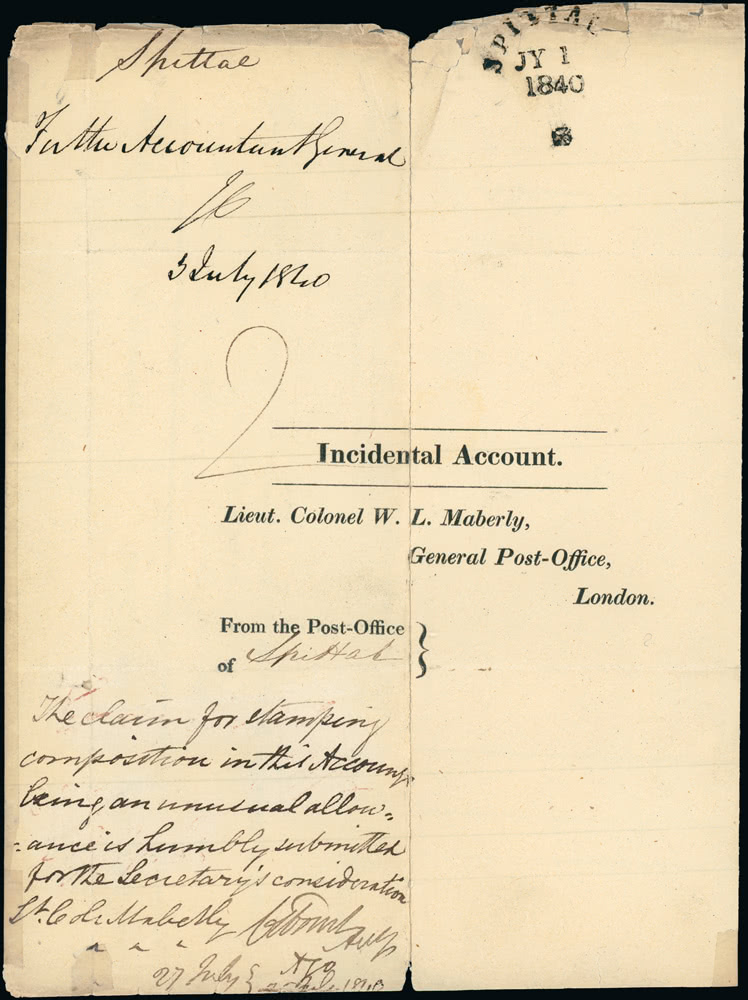 Spittal
SPITTAL
JY 1
1840
For the Accountant General
3 July 1840
2
Incidental Account.
Lieut. Colonel W. L. Maberly,
General Post-Office,
London.
From the Post-Office
of Spittal
The claim for stamping
composition in this Account
being an unusual allow=
=ance is humbly submitted
for the Secretary's consideration
Lt. Col. Maberly
27 July